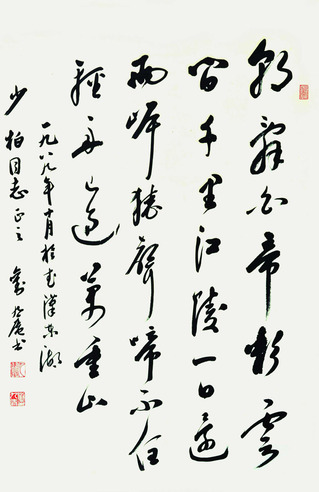 朝辭白帝彩雲
間千里江陵一日還
兩岸猿聲啼不住
輕舟已過萬重山
一九八九年十月於武漢東湖
少柏同志正之 書